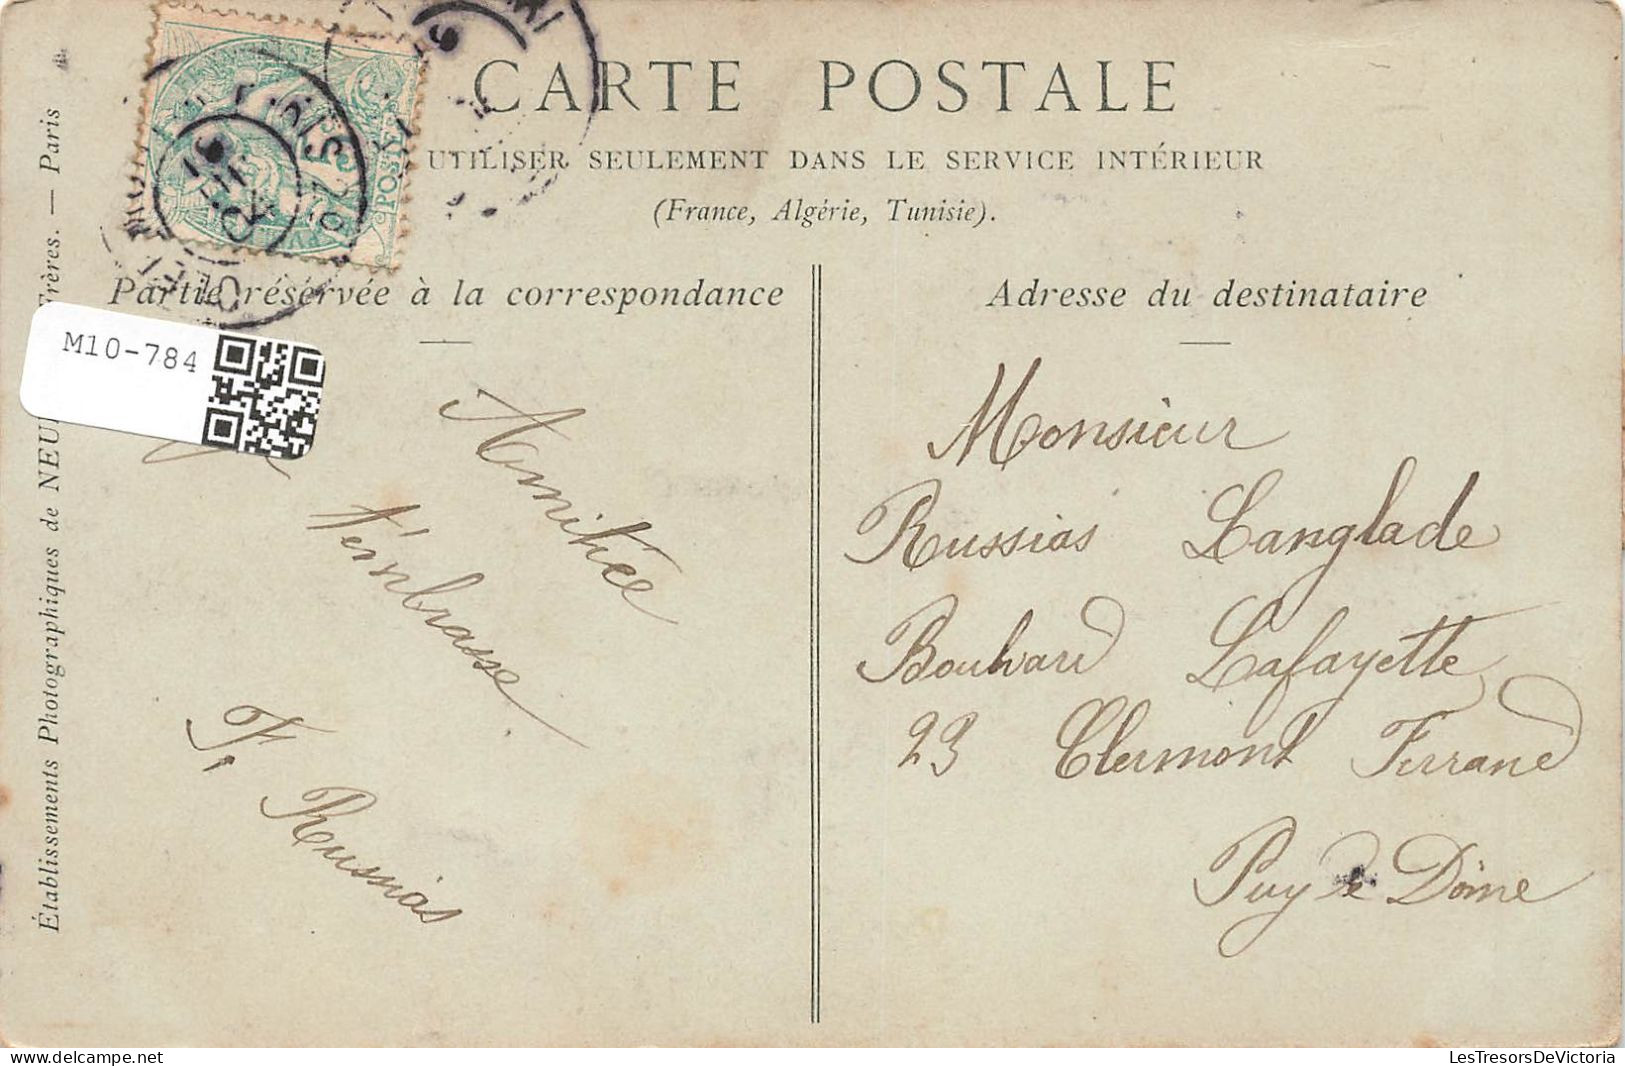 CARTE POSTALE
UTILISER SEULEMENT DANS LE SERVICE INTÉRIEUR
(France, Algérie, Tunisie).
Partie réservée à la correspondance
Adresse du destinataire
M10-784
Établissements Photographiques de NEU Frères. — Paris
POSTES
Amitiée
t'embrasse
F. Roussias
Monsieur
Roussias Langlade
Boulvard Lafayette
23 Clermont Ferrand
Puy de Dôme
LesTresorsDeVictoria